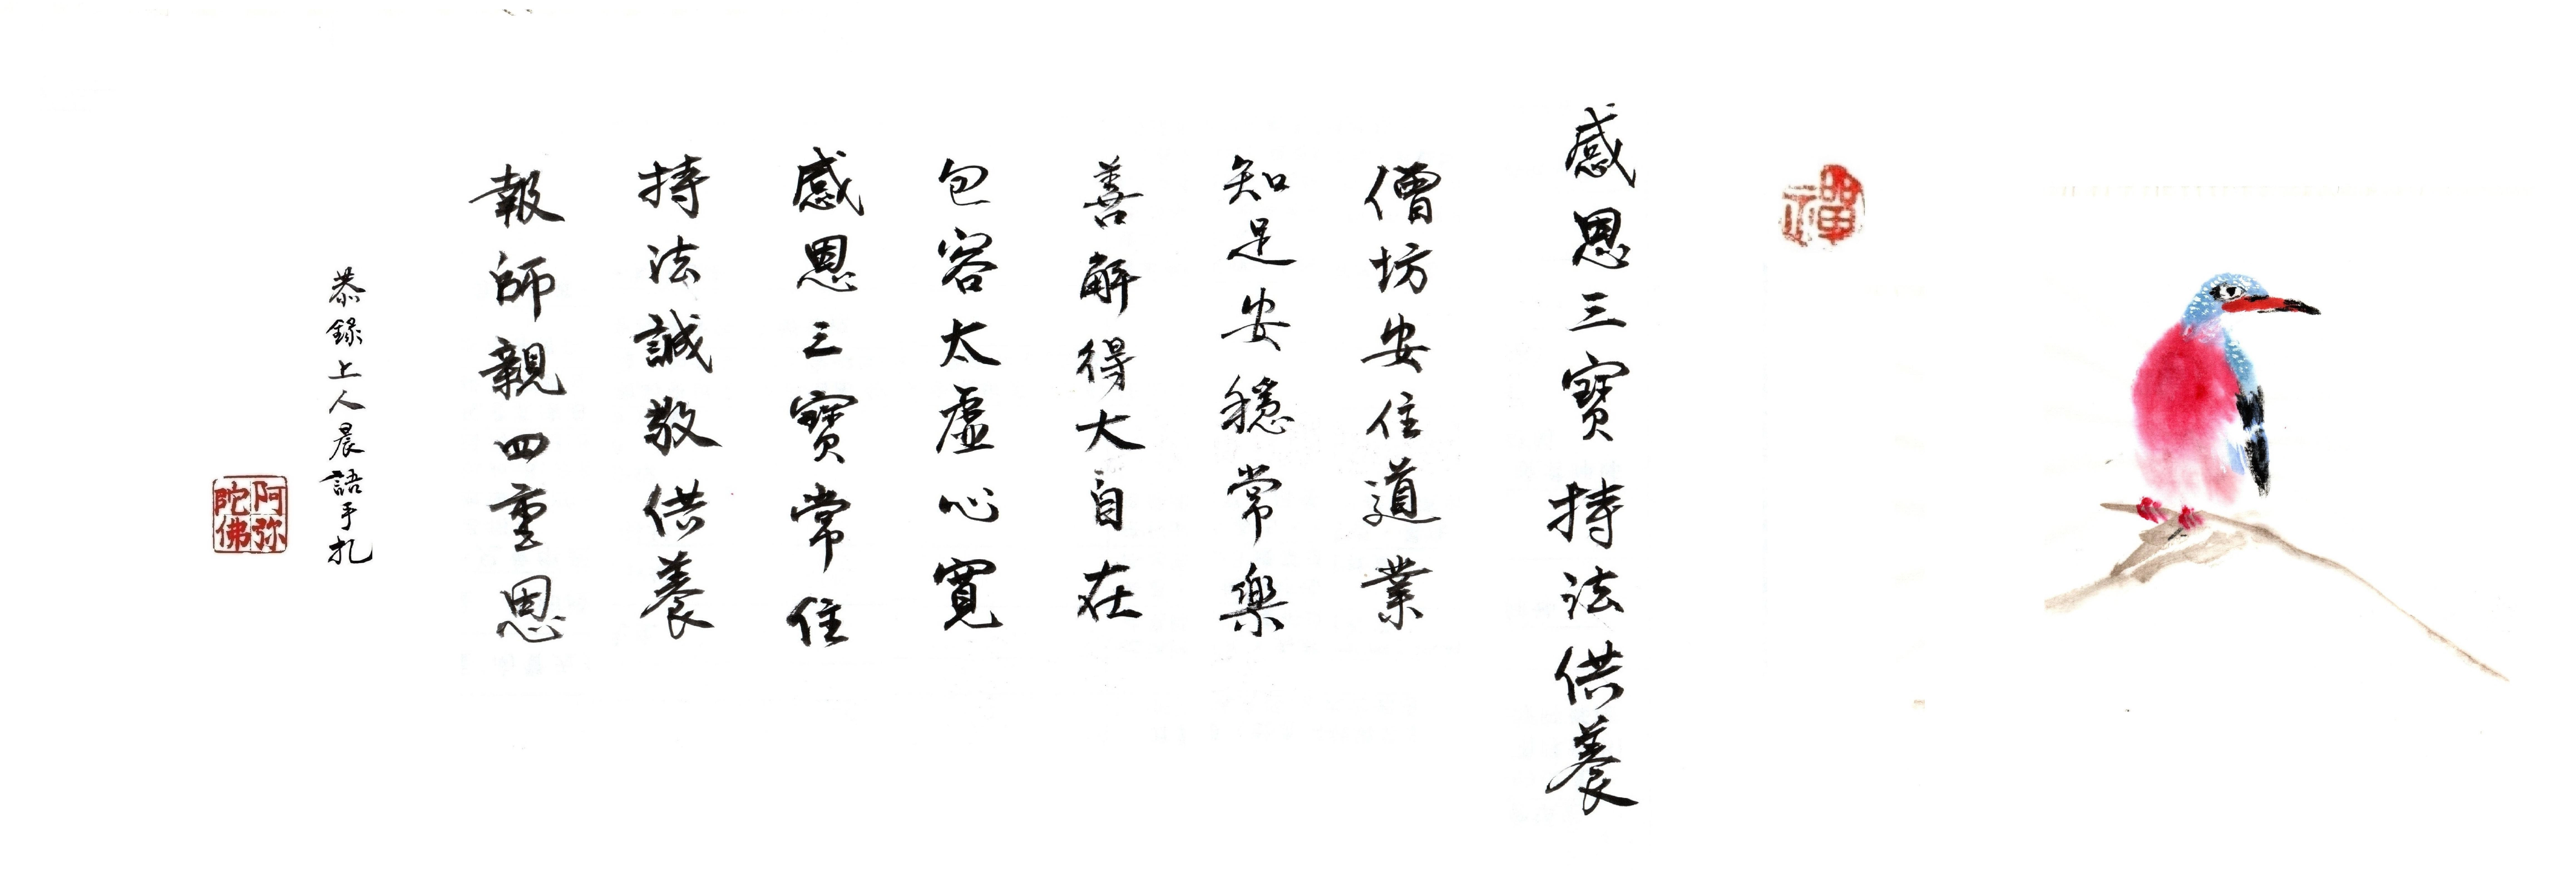 禪
感恩三寶 持法供養
僧坊安住道業
知足安穩常樂
善解得大自在
包容太虛心寬
感恩三寶常住
持法誠敬供養
報師親四重恩
恭錄上人晨語手札
阿弥
陀佛